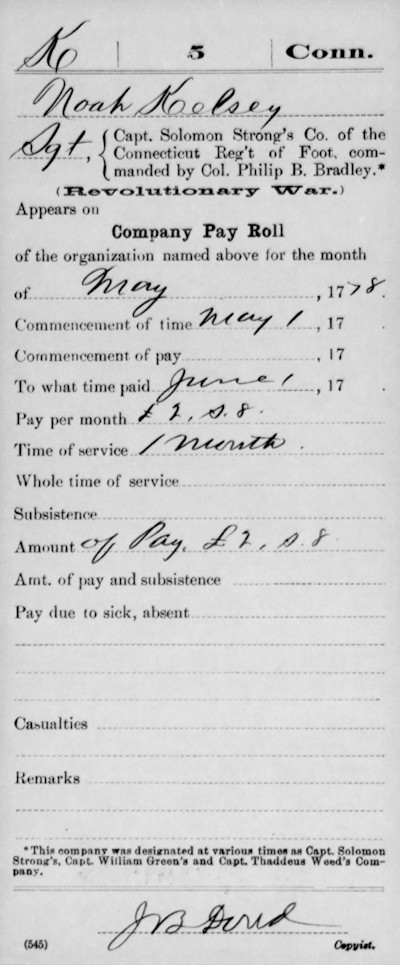 K | 5 | Conn.
Noah Kelsey
Sgt, { Capt. Solomon Strong's Co. of the
Connecticut Reg't of Foot, com-
manded by Col. Philip B. Bradley.*
(Revolutionary War.)
Appears on
Company Pay Roll
of the organization named above for the month
of May, 1778.
Commencement of time May 1, 17
Commencement of pay, 17
To what time paid June 1, 17 .
Pay per month £ 2, s. 8.
Time of service 1 month.
Whole time of service
Subsistence
Amount of Pay, £ 2, s. 8
Amt. of pay and subsistence
Pay due to sick, absent
Casualties
Remarks
*This company was designated at various times as Capt. Solomon
Strong's, Capt. William Green's and Capt. Thaddeus Weed's Com-
pany.
J B
(545) Copyist.